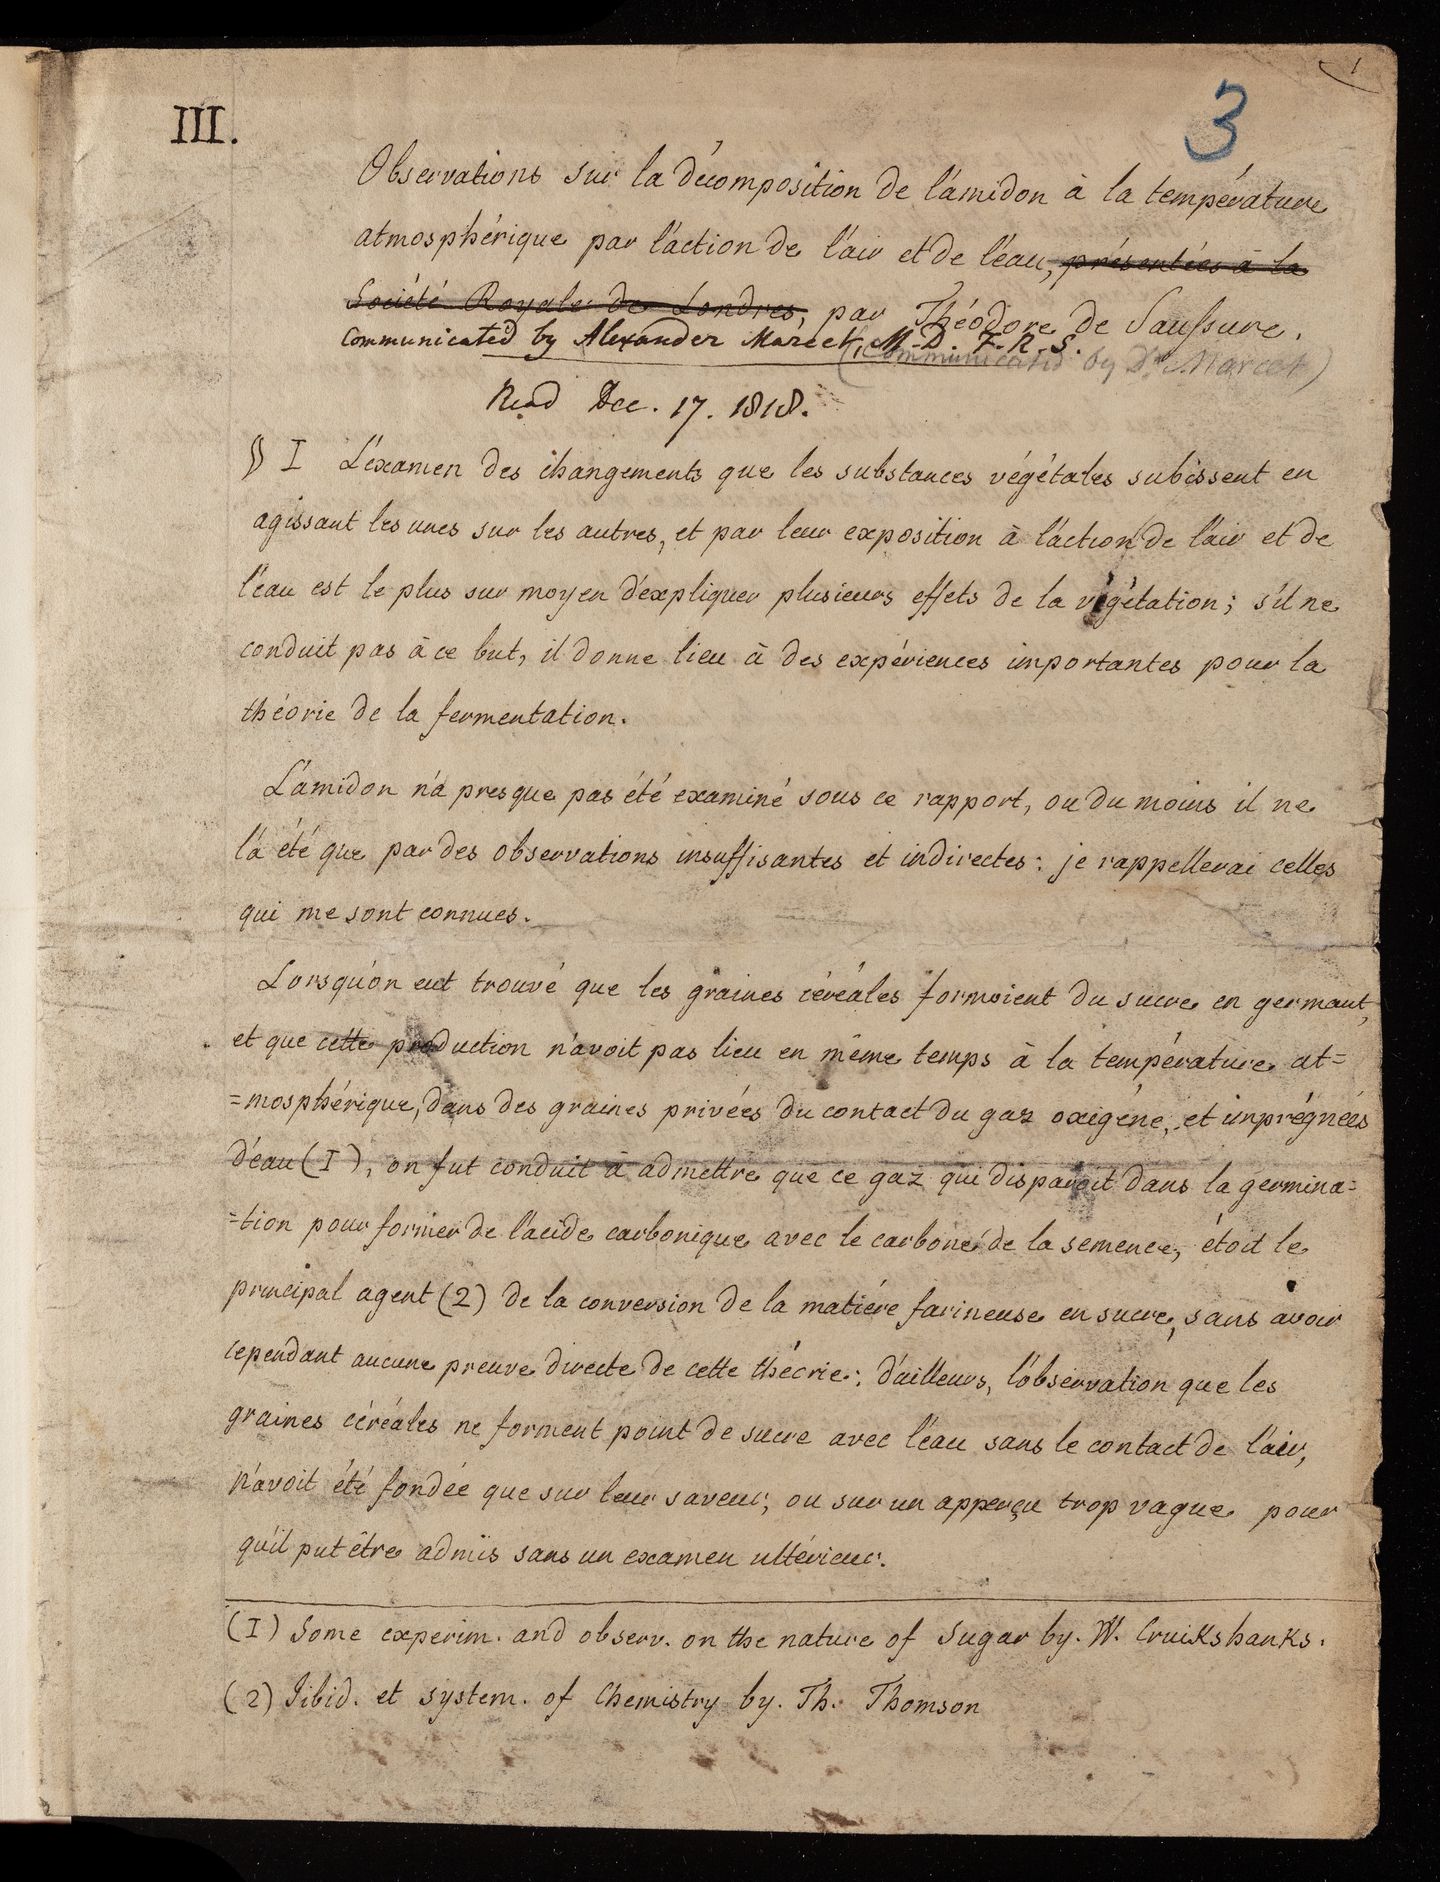 1
III.
3
Observations sur la décomposition de l'amidon à la température
atmosphérique par l'action de l'air et de l'eau, présentées à la
Société Royale de Londres, par Théodore de Saussure.
Communicated by Alexander Marcet, M.D. F.R.S.
(Communicated by Dr Marcet)
Read Dec. 17. 1818.
§ I L'éxamen des changements que les substances végétales subissent en
agissant les unes sur les autres, et par leur exposition à l'action de l'air et de
l'eau est le plus sur moyen d'expliquer plusieurs effets de la végétation; s'il ne
conduit pas à ce but, il donne lieu à des expériences importantes pour la
théorie de la fermentation.
L'amidon n'a presque pas été examiné sous ce rapport, ou du moins il ne
l'a été que par des observations insuffisantes et indirectes: je rappellerai celles
qui me sont connues.
Lorsqu'on eut trouvé que les graines céréales formoient du sucre en germant,
et que cette production n'avoit pas lieu en même temps à la température at=
=mosphérique, dans des graines privées du contact du gaz oxigéne, et imprégnées
d'eau (I), on fut conduit à admettre que ce gaz qui disparoit dans la germina=
=tion pour former de l'acide carbonique avec le carbone de la semence, étoit le
principal agent (2) de la conversion de la matiére farineuse en sucre, sans avoir
cependant aucune preuve directe de cette théorie: d'ailleurs, l'observation que les
graines céréales ne forment point de sucre avec l'eau sans le contact de l'air,
n'avoit été fondée que sur leur saveur, ou sur un apperçu trop vague pour
qu'il put être admis sans un examen ultérieur.
(I) Some experim. and observ. on the nature of Sugar by. W. Cruikshanks.
(2) Jibid. et system. of Chemistry by. Th. Thomson